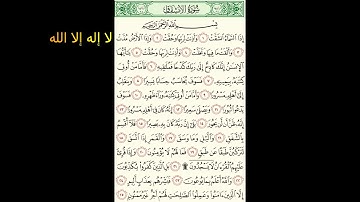 سُورَةُ الانشِقَاقِ
بِسْمِ اللَّهِ الرَّحْمَٰنِ الرَّحِيمِ
إِذَا السَّمَاءُ انشَقَّتْ ١ وَأَذِنَتْ لِرَبِّهَا وَحُقَّتْ ٢ وَإِذَا الْأَرْضُ مُدَّتْ
٣ وَأَلْقَتْ مَا فِيهَا وَتَخَلَّتْ ٤ وَأَذِنَتْ لِرَبِّهَا وَحُقَّتْ ٥ يَٰأَيُّهَا
الْإِنسَٰنُ إِنَّكَ كَادِحٌ إِلَىٰ رَبِّكَ كَدْحًا فَمُلَٰقِيهِ ٦ فَأَمَّا مَنْ أُوتِيَ
كِتَٰبَهُ بِيَمِينِهِ ٧ فَسَوْفَ يُحَاسَبُ حِسَابًا يَسِيرًا ٨ وَيَنقَلِبُ
إِلَىٰ أَهْلِهِ مَسْرُورًا ٩ وَأَمَّا مَنْ أُوتِيَ كِتَٰبَهُ وَرَاءَ ظَهْرِهِ ١٠ فَسَوْفَ
يَدْعُو ثُبُورًا ١١ وَيَصْلَىٰ سَعِيرًا ١٢ إِنَّهُ كَانَ فِي أَهْلِهِ مَسْرُورًا ١٣
إِنَّهُ ظَنَّ أَن لَّن يَحُورَ ١٤ بَلَىٰ إِنَّ رَبَّهُ كَانَ بِهِ بَصِيرًا ١٥ فَلَا أُقْسِمُ
بِالشَّفَقِ ١٦ وَالَّيْلِ وَمَا وَسَقَ ١٧ وَالْقَمَرِ إِذَا اتَّسَقَ ١٨
لَتَرْكَبُنَّ طَبَقًا عَن طَبَقٍ ١٩ فَمَا لَهُمْ لَا يُؤْمِنُونَ ٢٠ وَإِذَا قُرِئَ
عَلَيْهِمُ الْقُرْءَانُ لَا يَسْجُدُونَ ۩ ٢١ بَلِ الَّذِينَ كَفَرُوا يُكَذِّبُونَ
٢٢ وَاللَّهُ أَعْلَمُ بِمَا يُوعُونَ ٢٣ فَبَشِّرْهُم بِعَذَابٍ أَلِيمٍ
٢٤ إِلَّا الَّذِينَ ءَامَنُوا وَعَمِلُوا الصَّٰلِحَٰتِ لَهُمْ أَجْرٌ غَيْرُ مَمْنُونٍ ٢٥
لا إله إلا الله